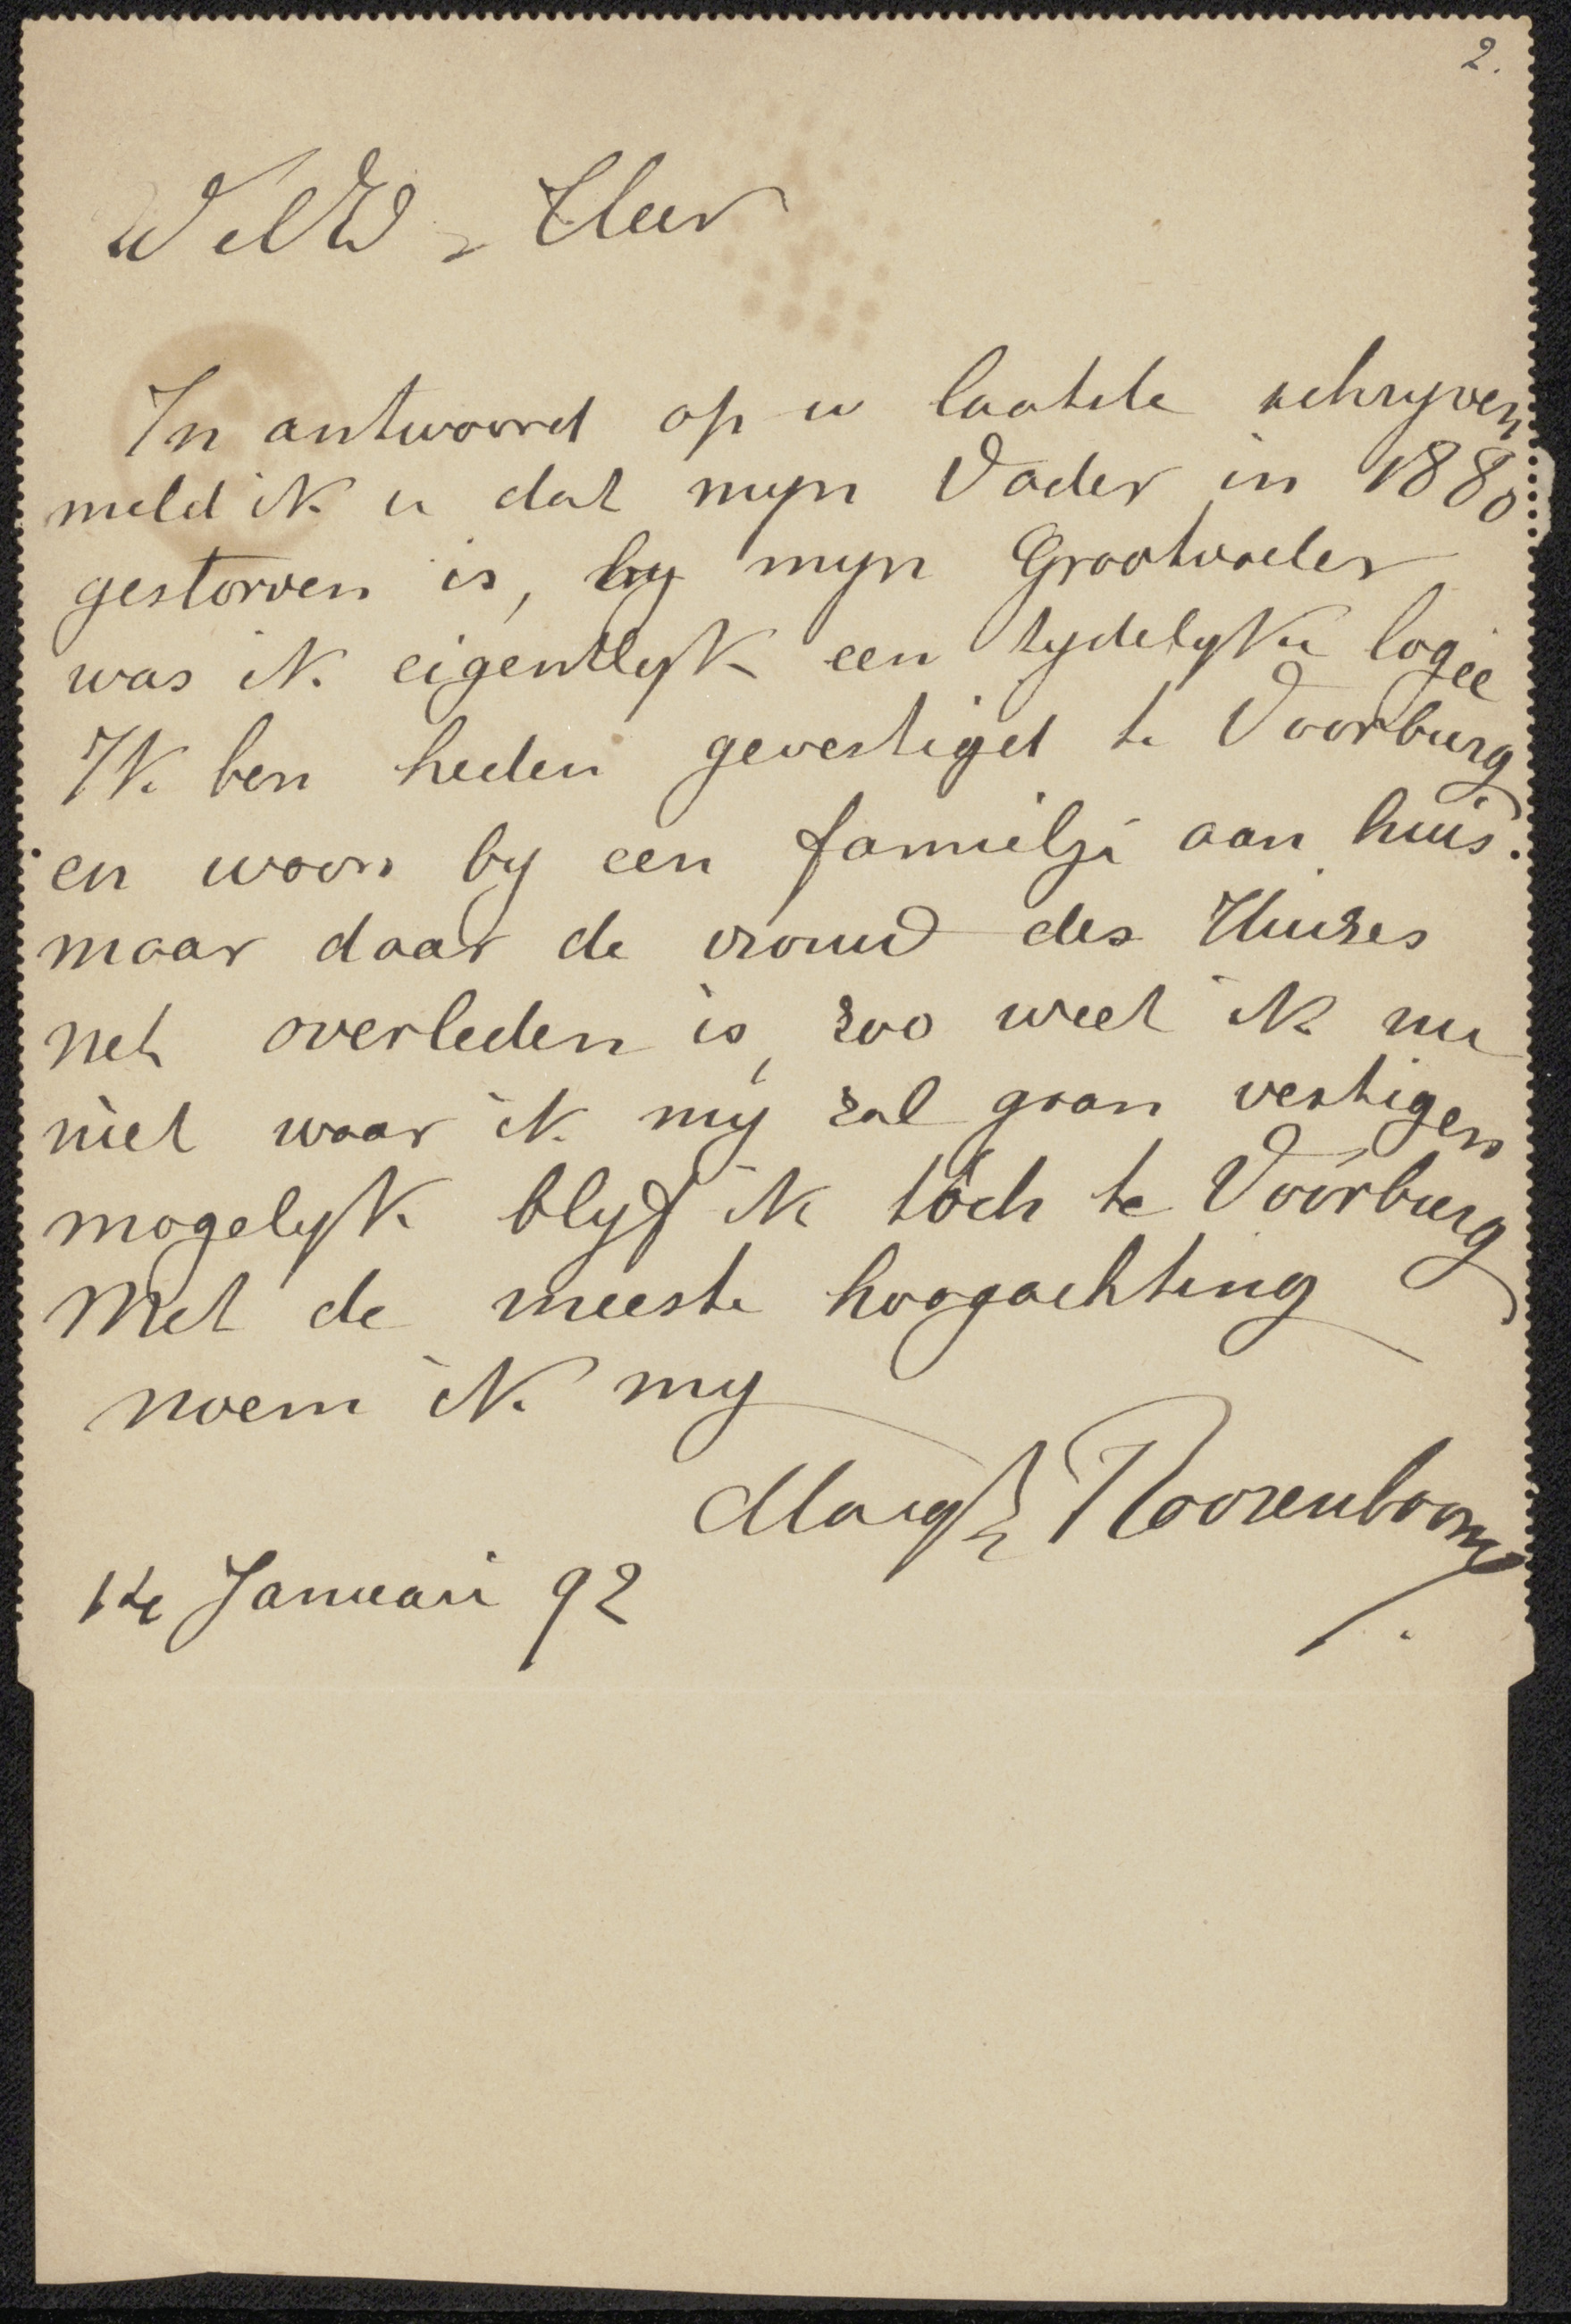 2.
WelW. Heer
In antwoord op u laatste schryven
meld ik u dat myn Vader in 1880
gestorven is, by myn Grootvader
was ik eigentlyk een tydelyke logée
Ik ben heden gevestigd te Voorburg
en woon by een familje aan huis.
maar daar de vrouw des Huizes
net overleden is, zoo weet ik nu
niet waar ik my zal gaan vestigen
mogelyk blyf ik toch te Voorburg
Met de meeste hoogachting
noem ik my
Margte Roosenboom
14 Januari 92